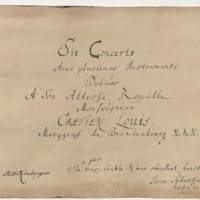 Six Concerts
Avec plusieurs Instruments
Dediées
A Son Altesse Royalle
Monseigneur
CRETIEN LOUIS.
Marggraf de Brandenbourg &c.&c.&c.
par
Son tres-humble & tres obeissant
Jean